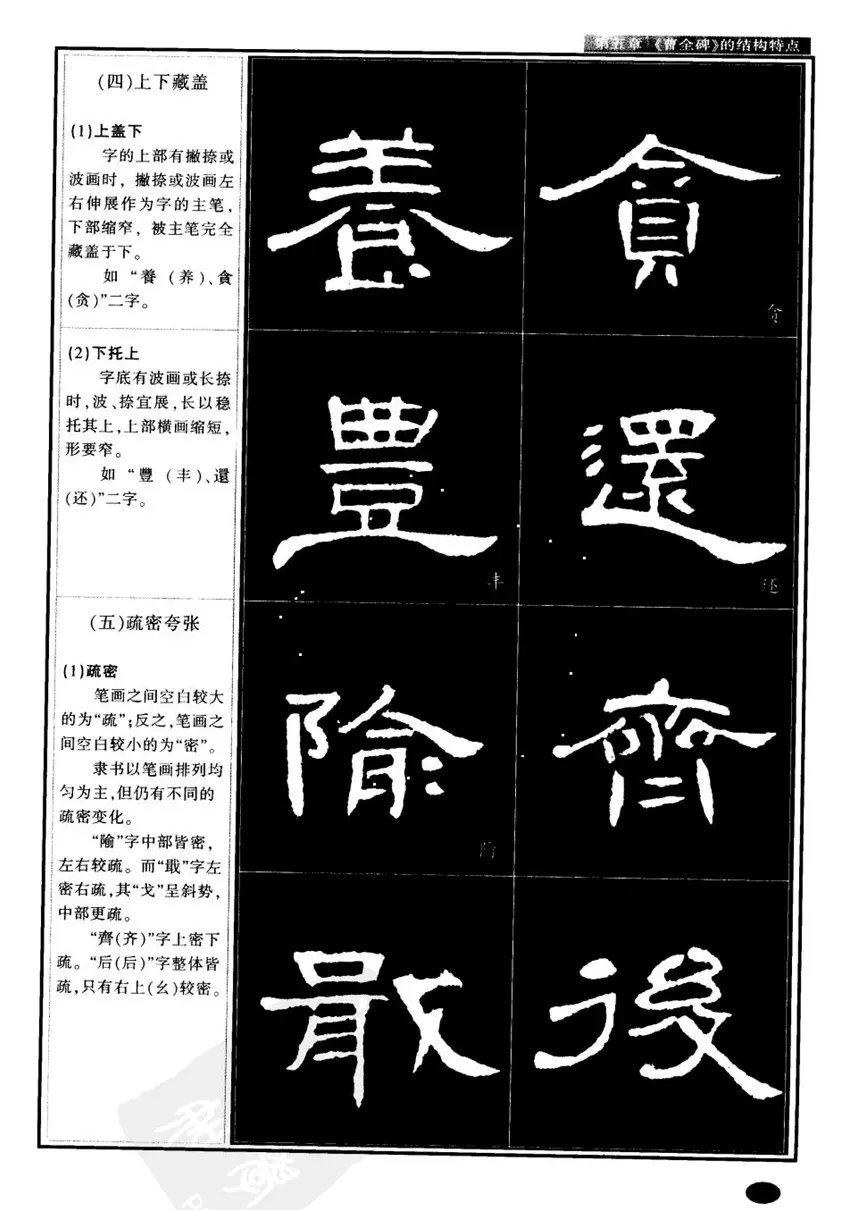 第五章 《曹全碑》的结构特点
(四)上下藏盖
(1)上盖下
字的上部有撇捺或
波画时，撇捺或波画左
右伸展作为字的主笔，
下部缩窄，被主笔完全
藏盖于下。
如“養(养)、貪
(贪)”二字。
(2)下托上
字底有波画或长捺
时,波、捺宜展,长以稳
托其上,上部横画缩短,
形要窄。
如“豐(丰)、還
(还)”二字。
(五)疏密夸张
(1)疏密
笔画之间空白较大
的为“疏”;反之,笔画之
间空白较小的为“密”。
隶书以笔画排列均
匀为主,但仍有不同的
疏密变化。
“隃”字中部皆密，
左右较疏。而“戢”字左
密右疏,其“戈”呈斜势，
中部更疏。
“齊(齐)”字上密下
疏。“后(后)”字整体皆
疏,只有右上(幺)较密。
養 貪
贪
豐 還
丰 还
隃 齊
隃
後